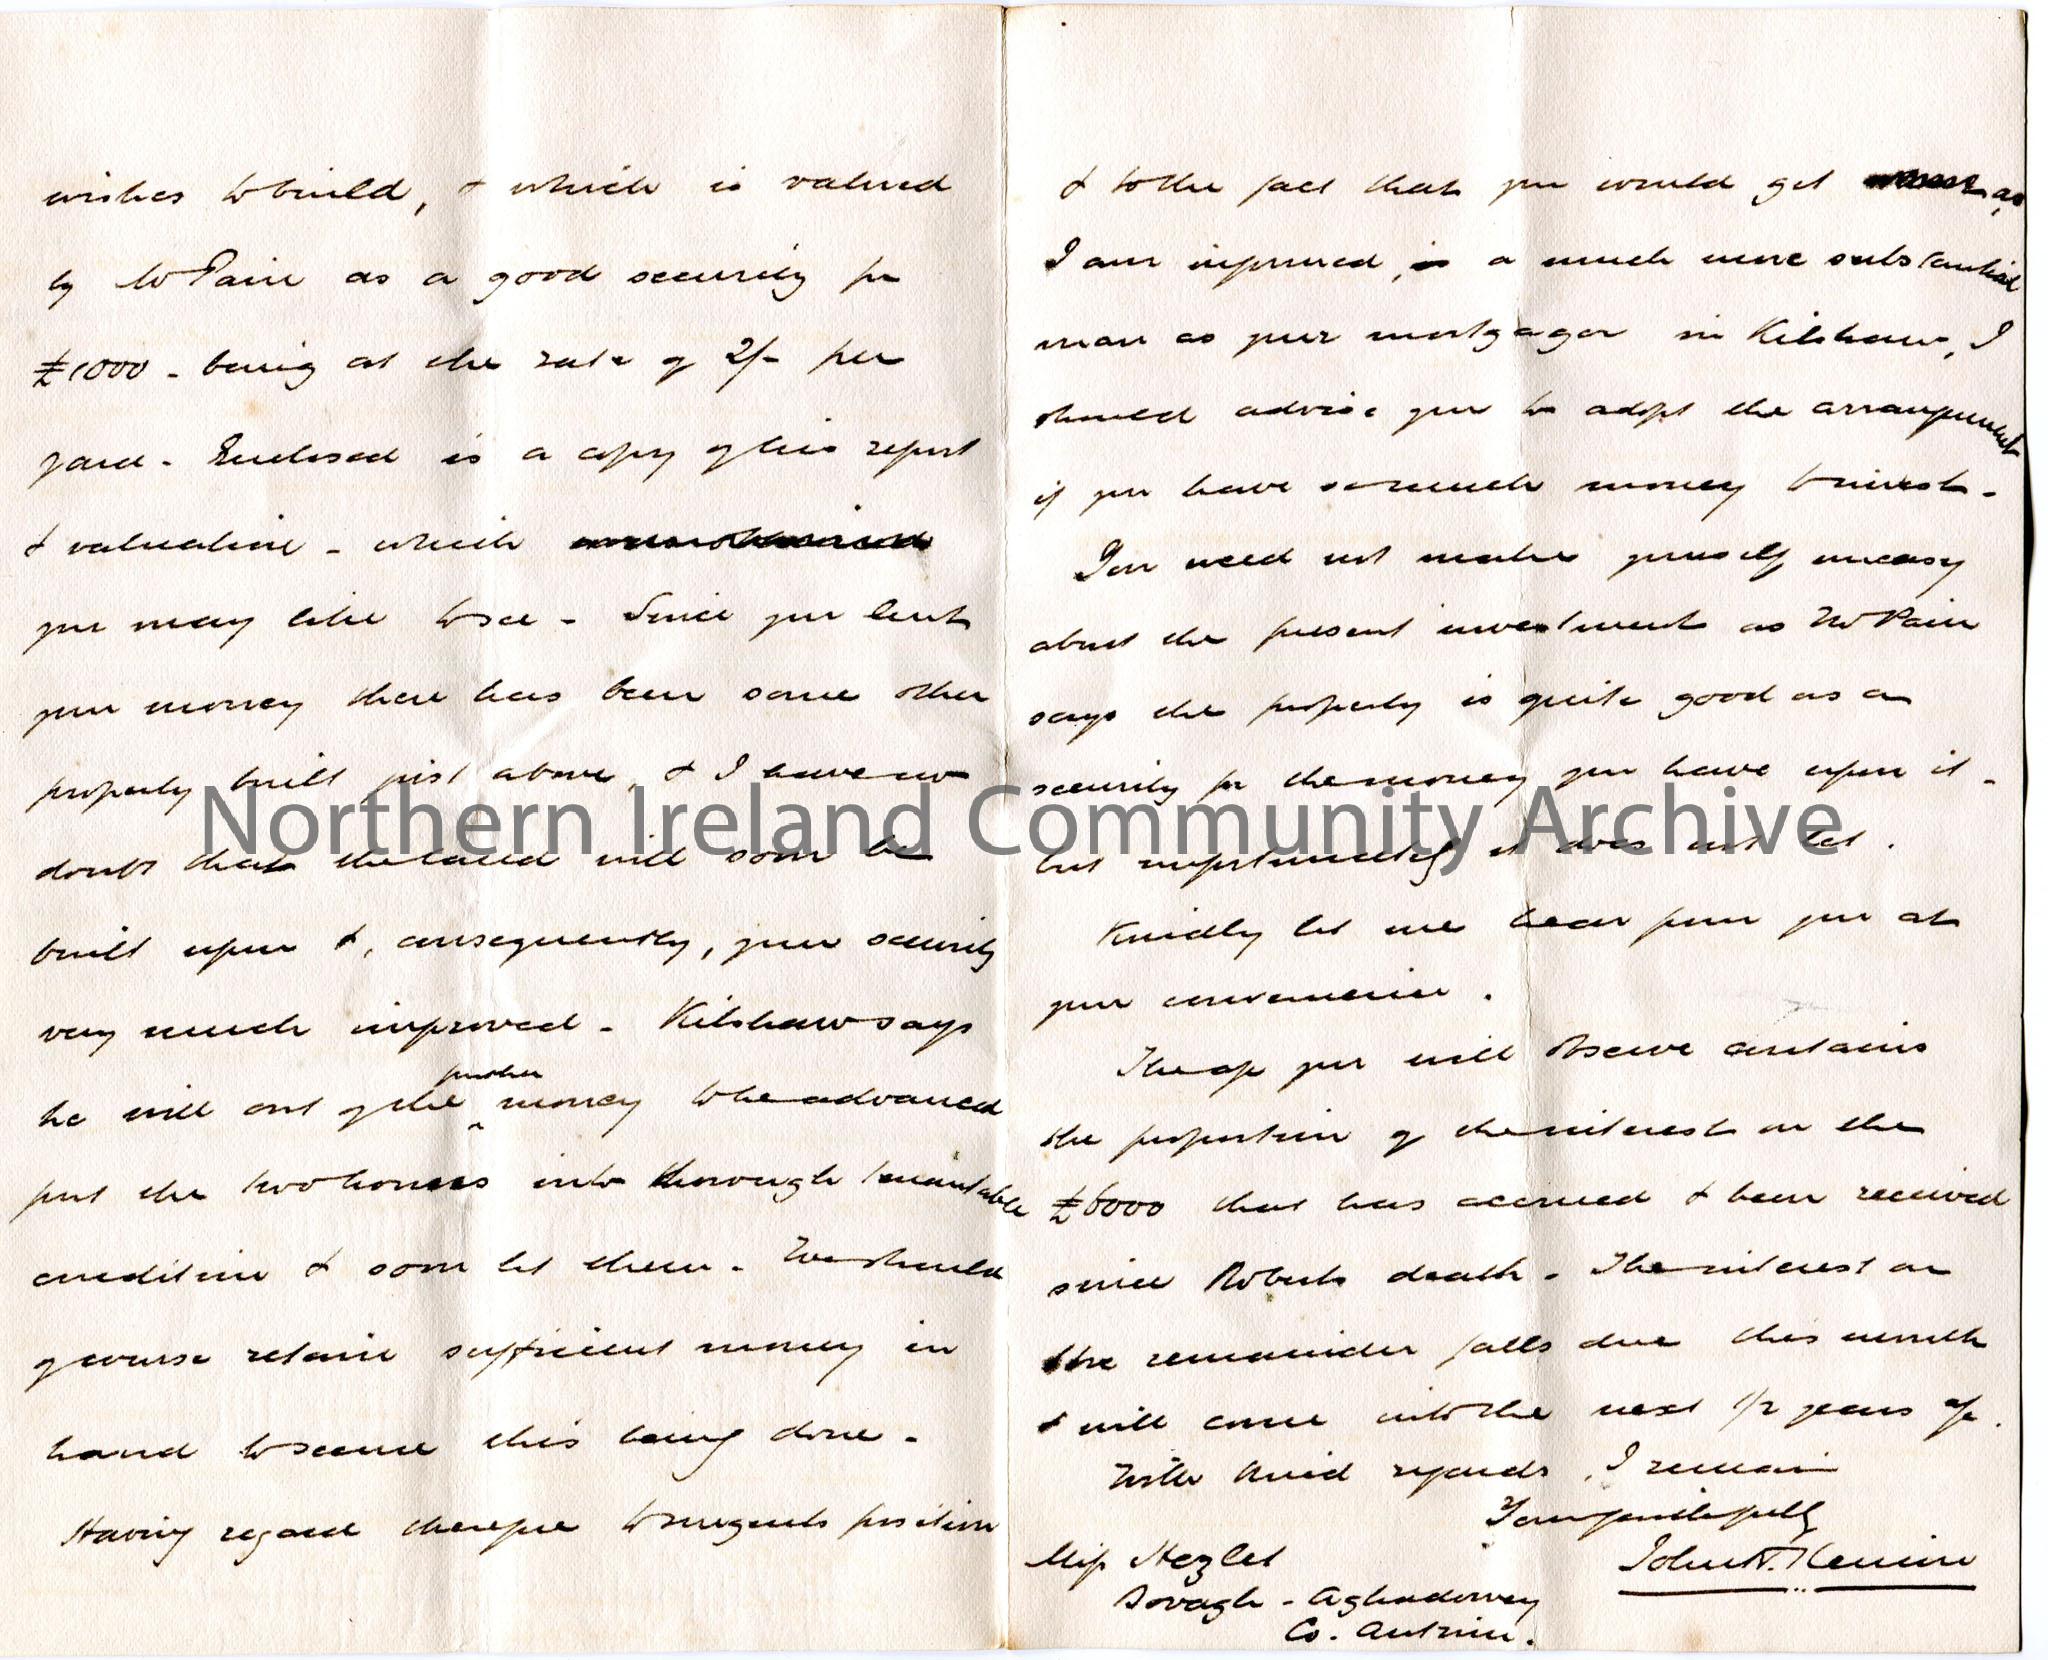 wishes to build, & which is valued
by Mr Pain as a good security for
£1000 - being at the rate of 2/- per
yard - Enclosed is a copy of his report
& valuation - which
you may like to see - Since you lent
your money there has been some other
property built just above, & I have no
doubt that the land will soon be
built upon &, consequently, your security
very much improved - Kilshaw says
he will out of the further money to be advanced
put the two houses into thorough tenantable
condition & soon let them - We should
of course retain sufficient money in
hand to secure this being done -
Having regard therefore to position
& to the fact that you would get as,
I am informed, a much more substantial
man as your mortgagor in Kilshaw, I
should advise you to adopt the arrangement
if you have so much money to invest -
You need not make yourself uneasy
about the present investment as Mr Pain
says the property is quite good as a
security for the money you have upon it -
but unfortunately it does not let.
Kindly let me hear from you at
your convenience.
The a/c you will observe contains
the proportion of the interest on the
£6000 that has accrued & been received
since Roberts death - The interest on
the remainder falls due this month
& will come into the next 1/2 years a/c.
With kind regards, I remain
Yours faithfully
John
Miss Hezlet
Bovagh - Aghadowey
Co. Antrim.
Northern Ireland Community Archive